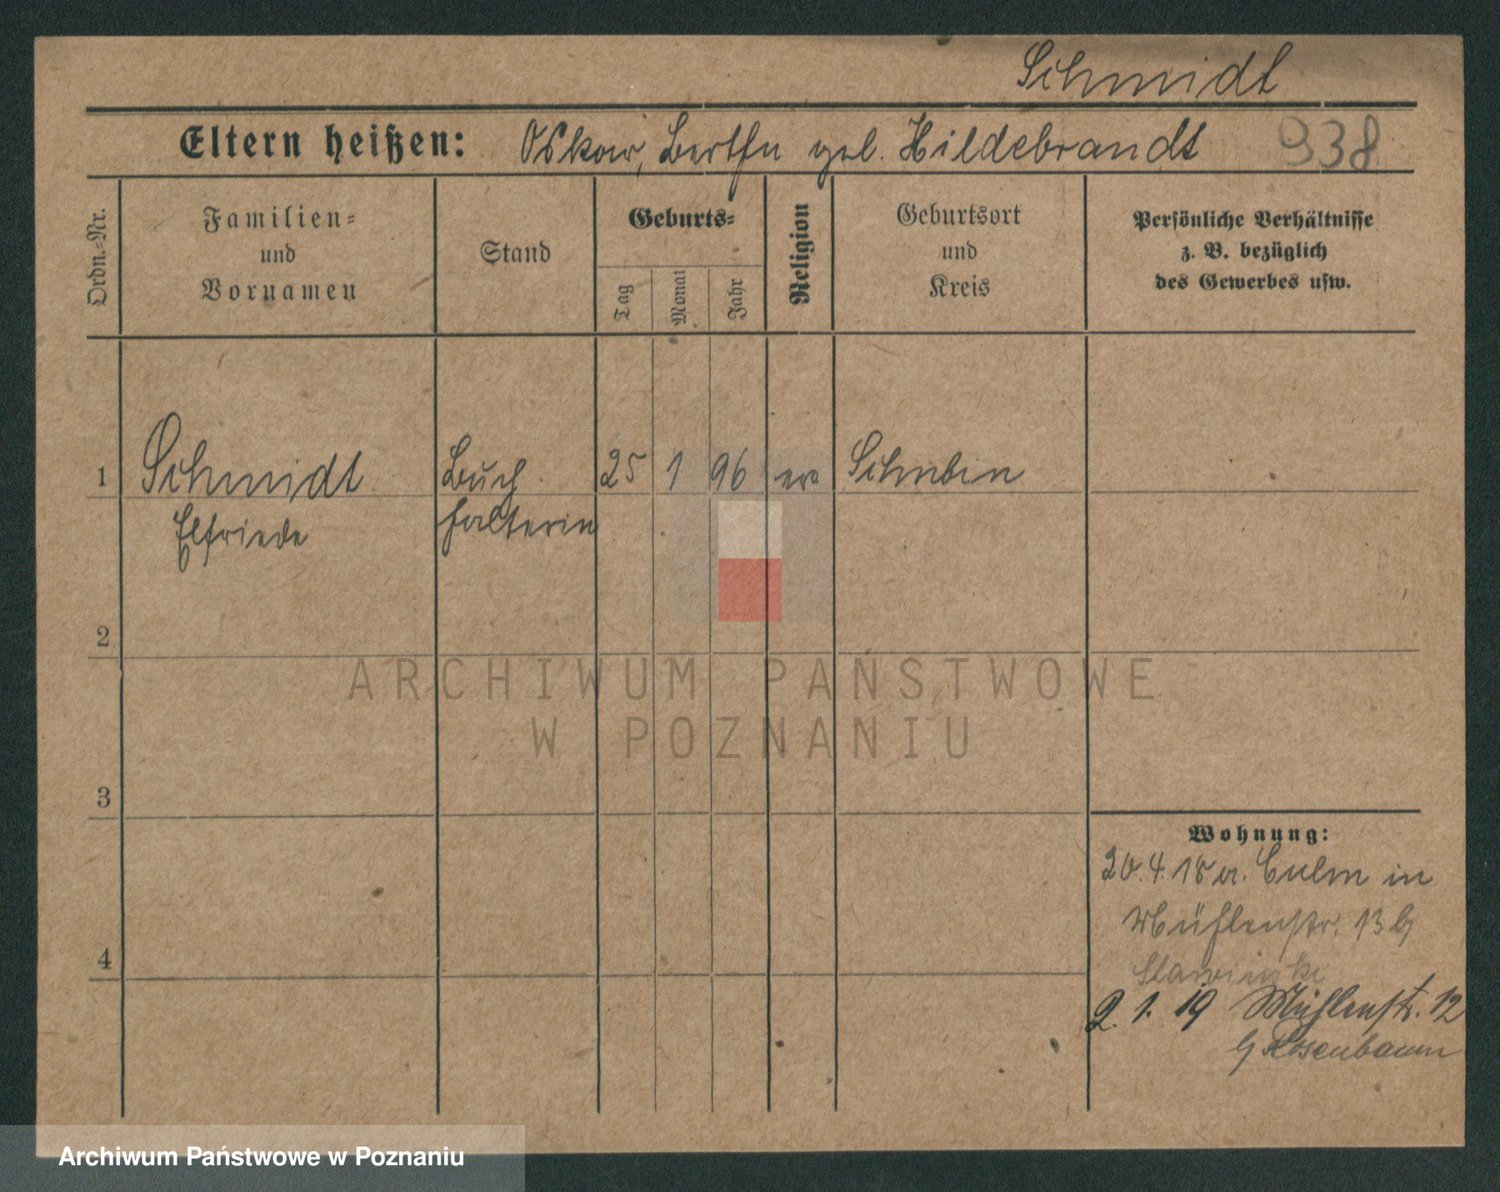 Schmidt
Eltern heißen: Oskar, Bertha geb. Hildebrandt 938
Ordn.=Nr.
Familien=
und
Vornamen
Stand
Geburts=
Tag
Monat
Jahr
Religion
Geburtsort
und
Kreis
Persönliche Verhältnisse
z. B. bezüglich
des Gewerbes usw.
1 Schmidt Buch 25 1 96 ev Schubin
Elfriede halterin
2
ARCHIWUM PAŃSTWOWE
W POZNANIU
3
Wohnung:
20.4.18 a. Culm in
Mühlenstr. 13 b/
4
2. 1. 19 Mühlenstr. 12
b/ Rosenbaum
Archiwum Państwowe w Poznaniu